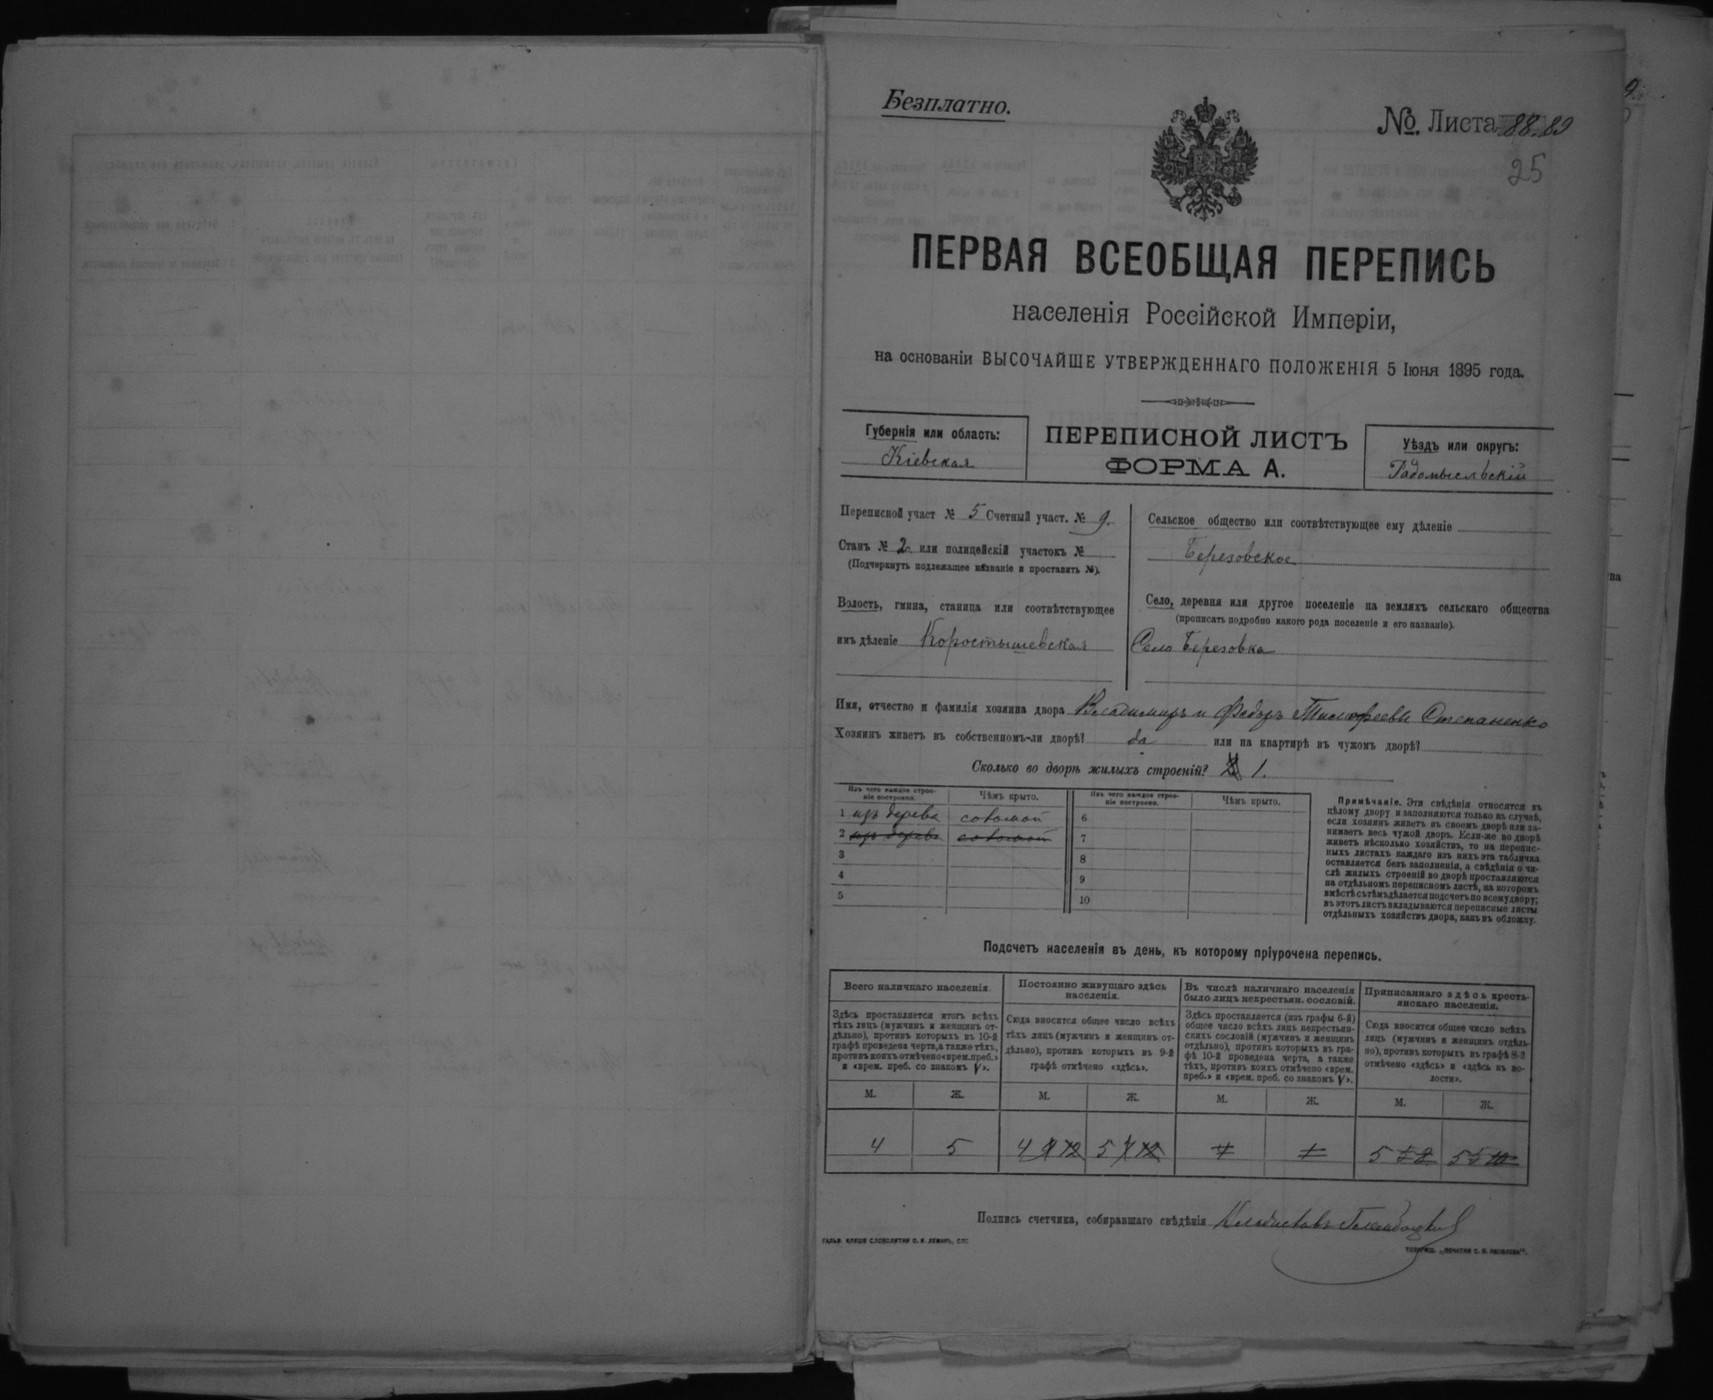 Безплатно.
№ Листа 88.89
25
ПЕРВАЯ ВСЕОБЩАЯ ПЕРЕПИСЬ
населенія Россійской Имперіи,
на основаніи ВЫСОЧАЙШЕ УТВЕРЖДЕННАГО ПОЛОЖЕНІЯ 5 Іюня 1895 года.
Губернія или область:
Кіевская
ПЕРЕПИСНОЙ ЛИСТЪ
ФОРМА А.
Уѣздъ или округъ:
Радомысльскій
Переписной участ № 5 Счетный участ. № 9.
Станъ № 2 или полицейскій участокъ №
(Подчеркнуть подлежащее названіе и проставить №).
Волость, гмина, станица или соотвѣтствующее
имъ дѣленіе Коростышевская
Сельское общество или соотвѣтствующее ему дѣленіе
Березовское
Село, деревня или другое поселеніе на земляхъ сельскаго общества
(прописать подробно какого рода поселеніе и его названіе).
Село Березовка
Имя, отчество и фамилія хозяина двора Владимиръ и Федоръ Тимофеевы Степаненко
Хозяинъ живетъ въ собственномъ-ли дворѣ? да или на квартирѣ въ чужомъ дворѣ?
Сколько во дворѣ жилыхъ строеній? 2 1.
Изъ чего каждое строеніе построено. Чѣмъ крыто.
1 изъ дерева соломой
2 изъ дерева соломой
3
4
5
Изъ чего каждое строеніе построено. Чѣмъ крыто.
6
7
8
9
10
Примѣчаніе. Эти свѣдѣнія относятся къ
цѣлому двору и заполняются только въ случаѣ,
если хозяинъ живетъ въ своемъ дворѣ или за-
нимаетъ весь чужой дворъ. Если-же во дворѣ
живетъ нѣсколько хозяйствъ, то на перепис-
ныхъ листахъ каждаго изъ нихъ эта табличка
оставляется безъ заполненія, а свѣдѣнія о чи-
слѣ жилыхъ строеній во дворѣ проставляются
на отдѣльномъ переписномъ листѣ, на которомъ
вмѣстѣ съ тѣмъ дѣлается подсчетъ по всему двору;
въ этотъ листъ вкладываются переписные листы
отдѣльныхъ хозяйствъ двора, какъ въ обложку.
Подсчетъ населенія въ день, къ которому пріурочена перепись.
Всего наличнаго населенія.
Здѣсь проставляется итогъ всѣхъ
тѣхъ лицъ (мужчинъ и женщинъ от-
дѣльно), противъ которыхъ въ 10-й
графѣ проведена черта, а также тѣхъ,
противъ коихъ отмѣчено «врем. преб.»
и «врем. преб. со знакомъ V».
М. Ж.
4 5
Постоянно живущаго здѣсь
населенія.
Сюда вносится общее число всѣхъ
тѣхъ лицъ (мужчинъ и женщинъ от-
дѣльно), противъ которыхъ въ 9-й
графѣ отмѣчено «здѣсь».
М. Ж.
4 5
Въ числѣ наличнаго населенія
было лицъ некрестьян. сословій.
Здѣсь проставляется (изъ графы 6-й)
общее число всѣхъ лицъ некрестьян-
скихъ сословій (мужчинъ и женщинъ
отдѣльно), противъ которыхъ въ гра-
фѣ 10-й проведена черта, а также
тѣхъ, противъ коихъ отмѣчено «врем.
преб.» и «врем. преб. со знакомъ V».
М. Ж.
Приписаннаго здѣсь кресть-
янскаго населенія.
Сюда вносится общее число всѣхъ
лицъ (мужчинъ и женщинъ отдѣль-
но), противъ которыхъ въ графѣ 8-й
отмѣчено «здѣсь» и «здѣсь въ во-
лости».
М. Ж.
5 5
Подпись счетчика, собиравшаго свѣдѣнія